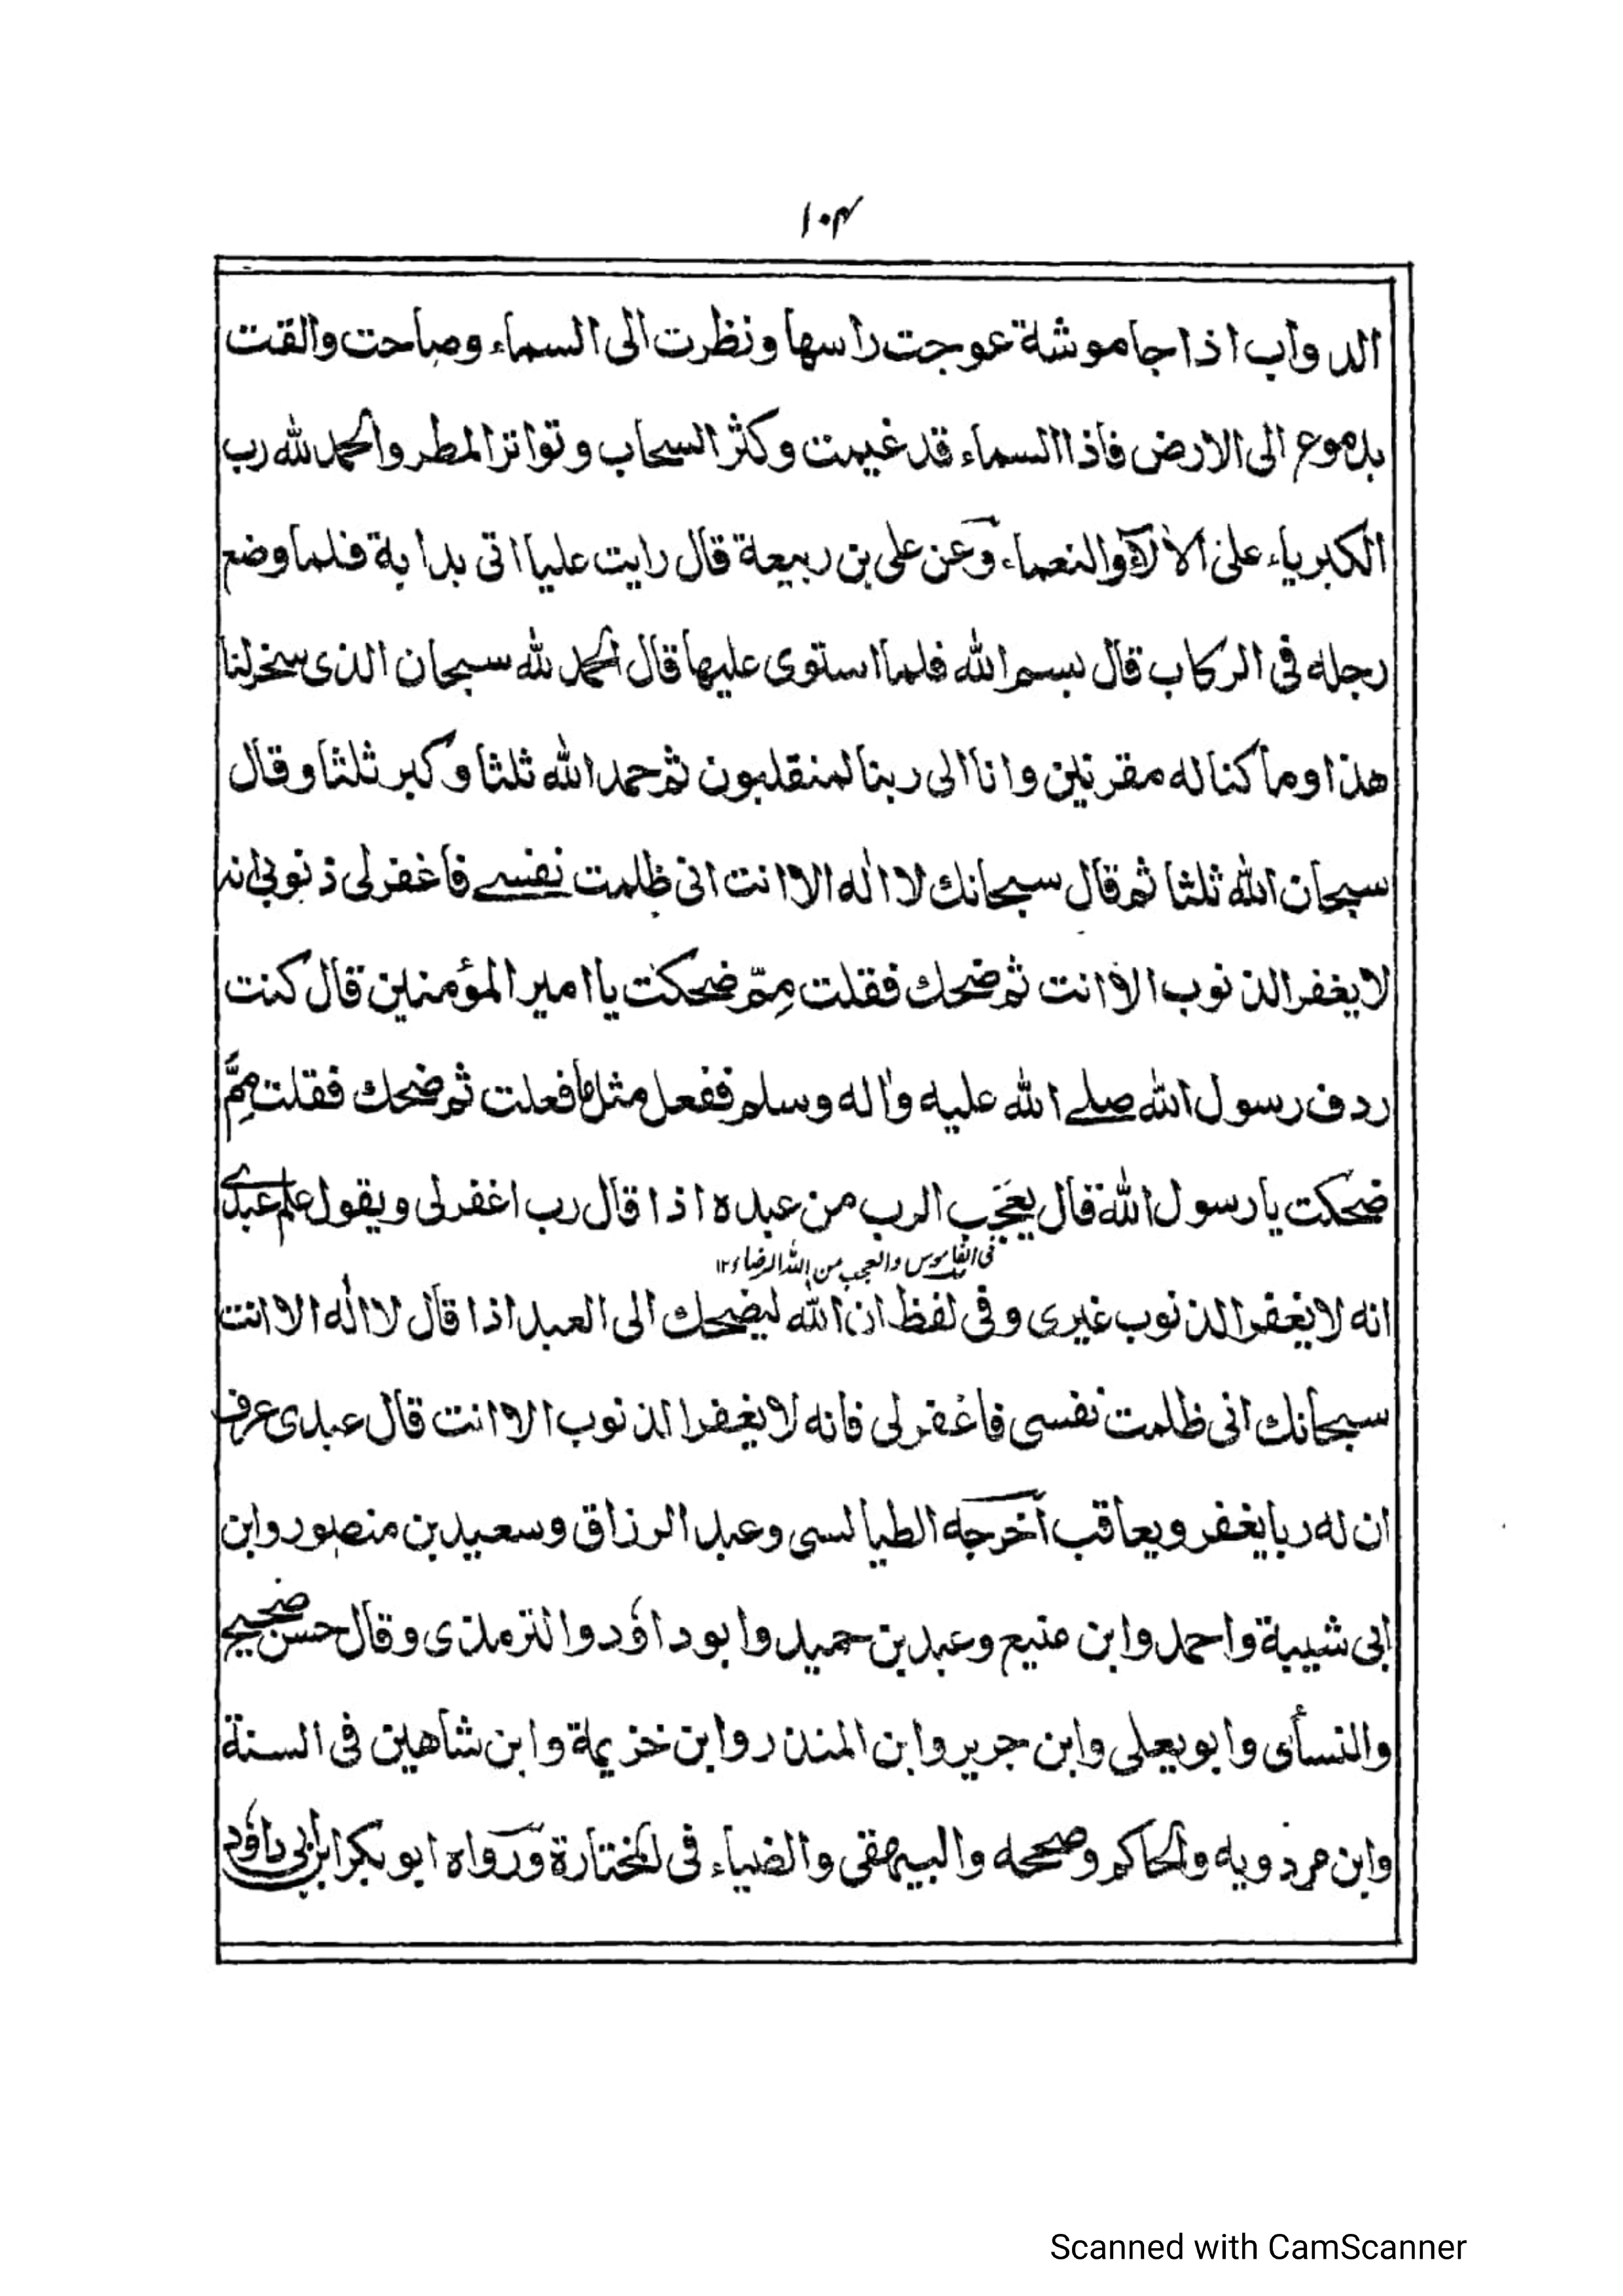 ١٠٤
الدواب اذا جاموشة عوجت راسها ونظرت الى السماء وصاحت والقت
بدموع الى الارض فاذا السماء قد غيمت وكثر السحاب وتواتر المطر والحمد لله رب
الكبرياء على الآلاء والنعماء وعن على بن ربيعة قال رايت عليا اتى بدابة فلما وضع
رجله فى الركاب قال بسم الله فلما استوى عليها قال الحمد لله سبحان الذى سخر لنا
هذا وما كنا له مقرنين وانا الى ربنا لمنقلبون ثم حمد الله ثلثا وكبر ثلثا وقال
سبحان الله ثلثا ثم قال سبحانك لا اله الا انت انى ظلمت نفسے فاغفر لى ذنوبى انه
لا يغفر الذنوب الا انت ثم ضحك فقلت مِمّ ضحكت يا امير المؤمنين قال كنت
ردف رسول الله صلے الله عليه واٰله وسلم ففعل مثل ما فعلت ثم ضحك فقلت مِمَّ
ضحكت يا رسول الله قال يعجَب الرب من عبده اذا قال رب اغفر لى ويقول علم عبدے
فى القاموس والعجب من الله الرضاء ١٢
انه لا يغفر الذنوب غيرى وفى لفظ ان الله ليضحك الى العبد اذا قال لا اله الا انت
سبحانك انى ظلمت نفسى فاغفر لى فانه لا يغفر الذنوب الا انت قال عبدى عرف
ان له ربا يغفر ويعاقب اخرجه الطيالسى وعبد الرزاق وسعيد بن منصور وابن
ابى شيبة واحمد وابن منيع وعبد بن حميد وابو داؤد والترمذى وقال حسن صحيح
والنسأى وابو يعلى وابن جرير وابن المنذر وابن خزيمة وابن شاهين فى السنة
وابن مردويه والحاكم وصححه والبيهقى والضياء فى المختارة ورواه ابو بكر ابن ابى داؤد
Scanned with CamScanner